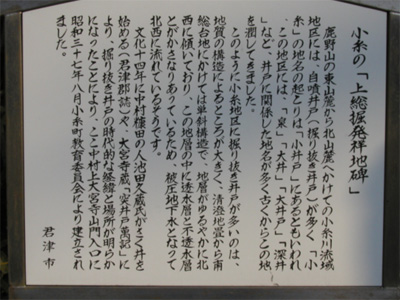 小糸の「上総掘発祥地碑」
鹿野山の東山麓から北山麓へかけての小糸川流域
地区には、自噴井戸(掘り抜き井戸)が多く、「小
糸」の地名の起こりは「小井戸」にあるともいわれ
、この地区には、「泉」「大井」「大井戸」「深井
」など、井戸に関係した地名が多く古くからこの地
を潤してきました。
このように小糸地区に掘り抜き井戸が多いのは、
地質の構造によるところが大きく、清澄地畳から南
総台地にかけては単斜構造で、地層がゆるやかに北
西に傾いており、この地層の中に透水層と不透水層
とがかさなりあっているため、被圧地下水となって
北西に流れているそうです。
文化十四年に中村糠田の人池田久蔵氏がさく井を
始める(君津郡誌)や、大宮寺蔵「突井戸萬記」に
より、掘り抜き井戸の時代的な経緯と場所が明らか
になったことにより、ここ中村上大宮寺山門入口に
昭和三十七年八月小糸町教育委員会により建立され
ました。
君津市